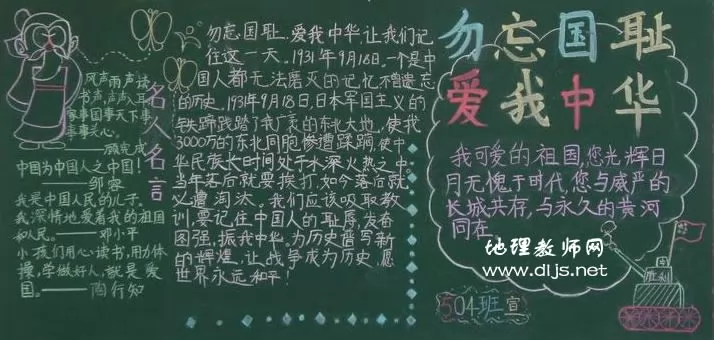 名人名言
风声雨声读
书声,声声入耳
家事国事天下事
事事关心。
——顾宪成
中国为中国人之中国!
——邹容
我是中国人民的儿子。
我深情地爱着我的祖国
和人民。——邓小平
小孩们用心读书,用力体
操,学做好人,就是爱
国。——陶行知
勿忘国耻、爱我中华,让我们记
住这一天。1931年9月18日,一个是中
国人都无法磨灭的记忆,不曾遗忘
的历史。1931年9月18日,日本军国主义的
铁蹄践踏了我广袤的东北大地,使我
3000万的东北同胞惨遭蹂躏,使中
华民族长时间处于水深火热之中。
当年落后就要挨打,如今落后就
义遭淘汰。我们应该吸取教
训,要记住中国人的耻辱,发奋
图强,振我中华。为历史谱写新
的辉煌,让战争成为历史,愿
世界永远和平!
勿忘国耻
爱我中华
我可爱的祖国,您光辉日
月无愧于时代,您与威严的
长城共存,与永久的黄河
同在
地理教师网
www.dljs.net
胜利
504班宣